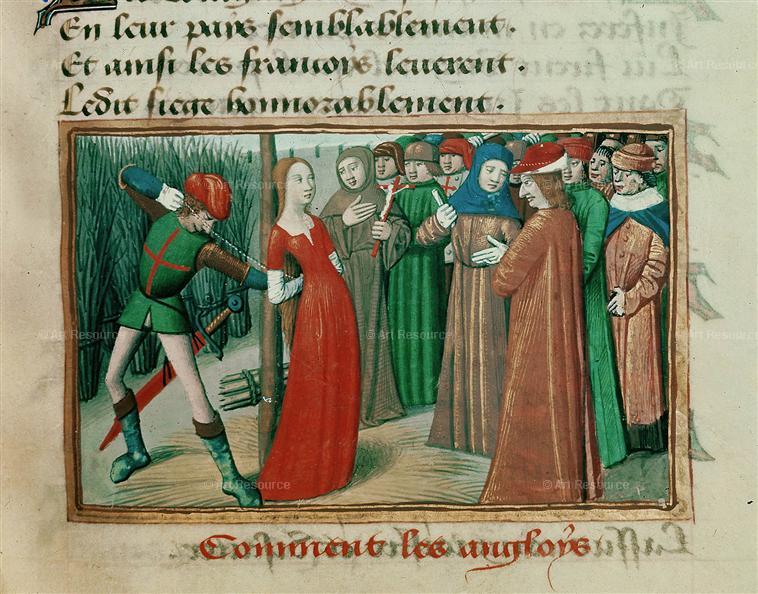 En leur pays semblablement.
Et ainsi les francoys leuerent.
Ledit siege honnorablement.
© Art Resource
© Art Resource
© Art Resource
© Art Resource
© Art Resource
© Art Resource
© Art Resource
Comment les angloys